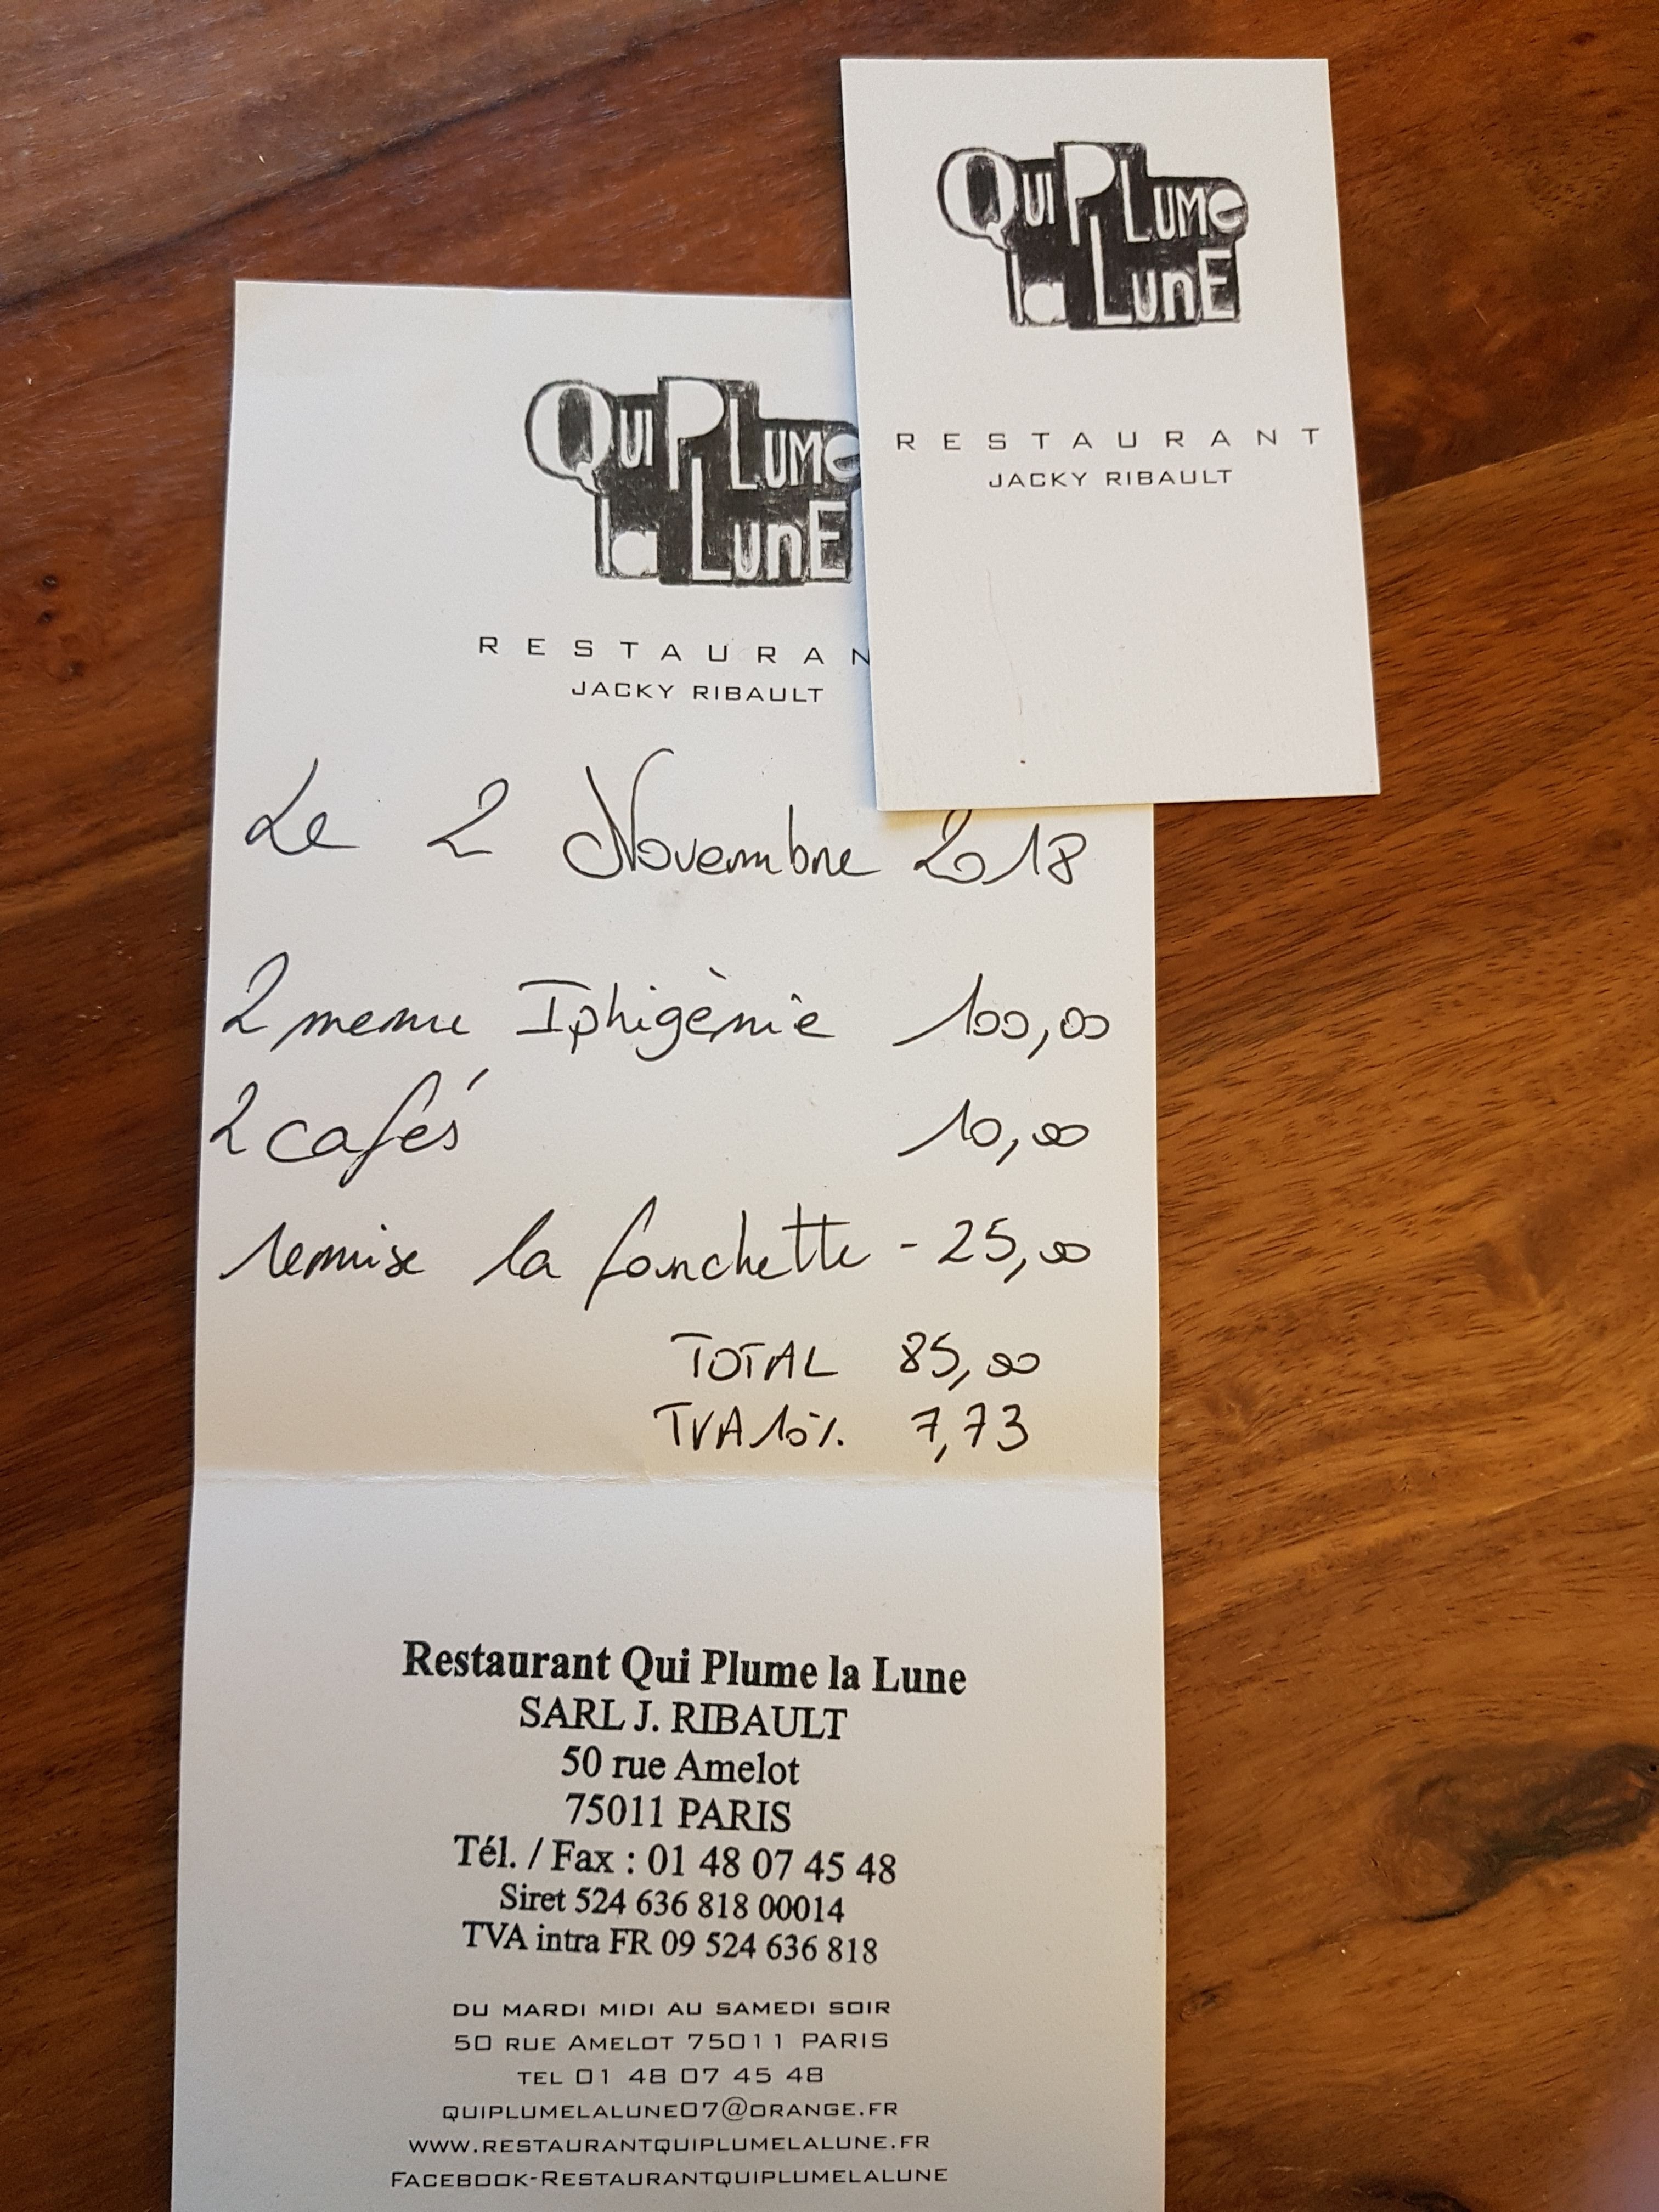 Qui Plume
la Lune
RESTAURANT
JACKY RIBAULT
Qui Plume
la Lune
RESTAURAN
JACKY RIBAULT
Le 2 Novembre 2018
2 menu Iphigènie 100,00
2 cafés 10,00
remise la fourchette - 25,00
TOTAL 85,00
TVA 10%. 7,73
Restaurant Qui Plume la Lune
SARL J. RIBAULT
50 rue Amelot
75011 PARIS
Tél. / Fax : 01 48 07 45 48
Siret 524 636 818 00014
TVA intra FR 09 524 636 818
DU MARDI MIDI AU SAMEDI SOIR
50 RUE AMELOT 75011 PARIS
TEL 01 48 07 45 48
QUIPLUMELALUNE07@ORANGE.FR
WWW.RESTAURANTQUIPLUMELALUNE.FR
FACEBOOK-RESTAURANTQUIPLUMELALUNE